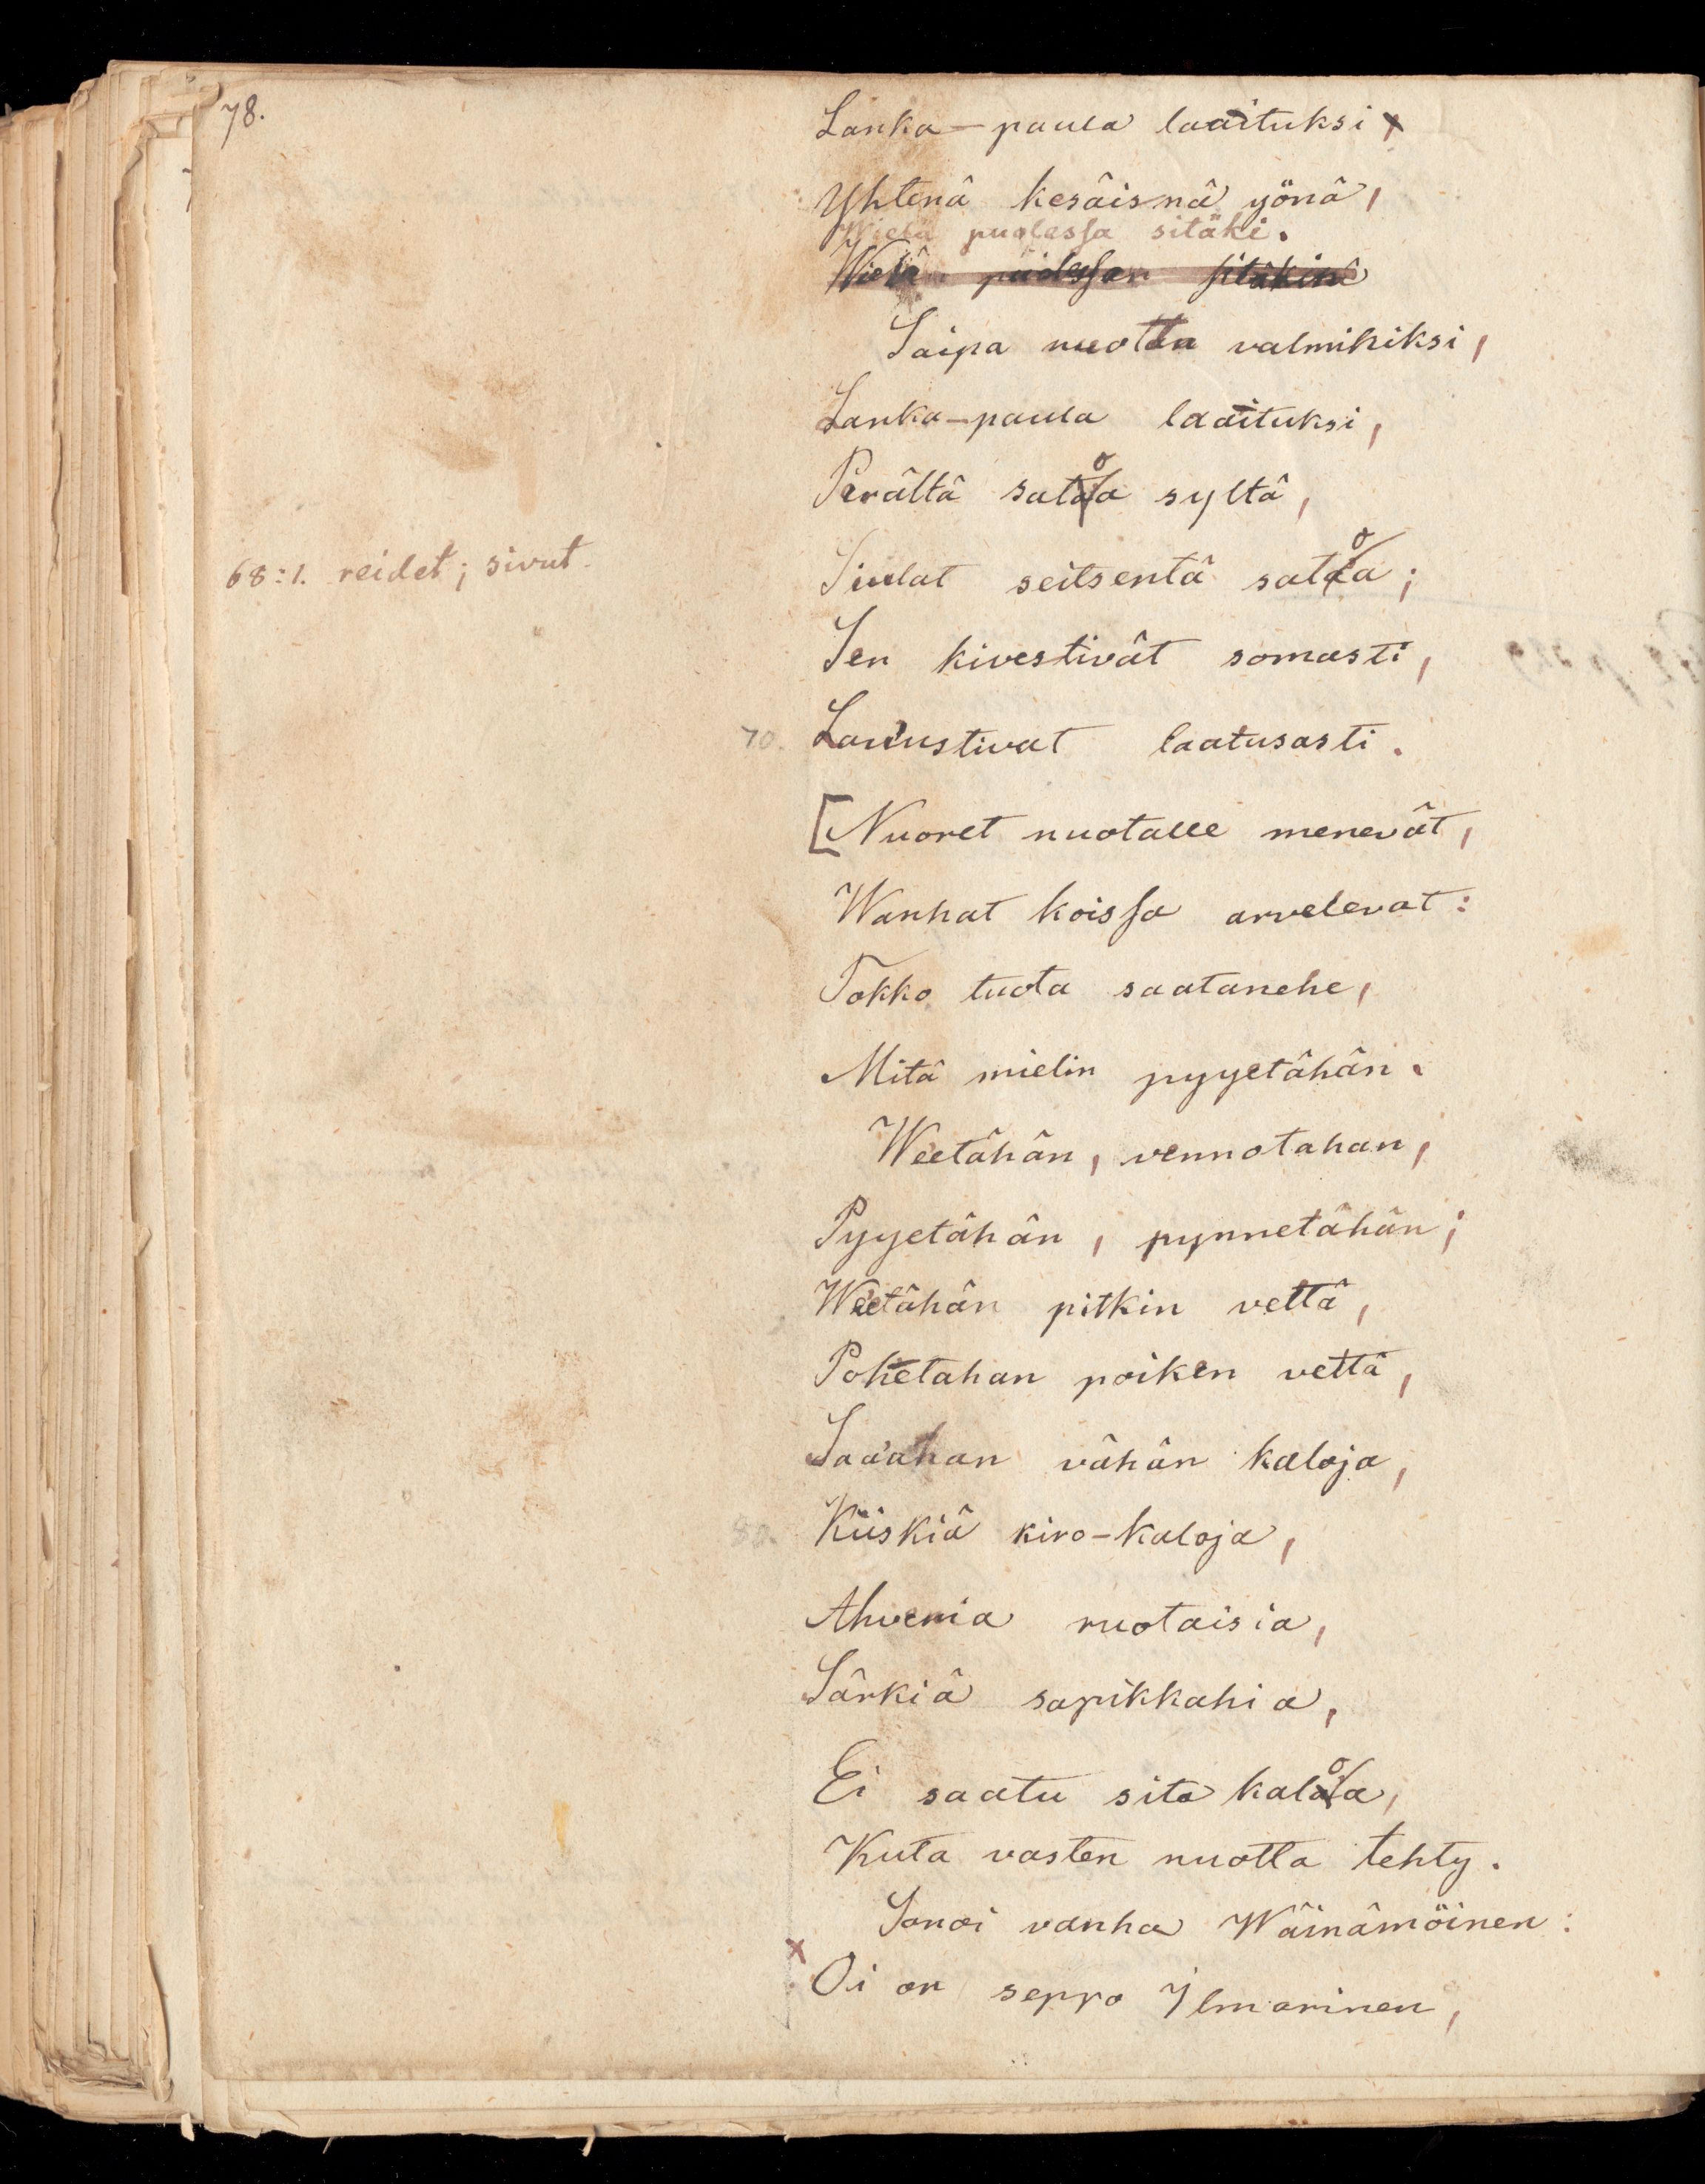 78.
Lanka-paula laaituksi
Yhtenä kesäisnä yönä,
Wielä puolessa sitäki.
Wielä puolessa sitäkinä
Saipa nuotan valmihiksi,
Lanka-paula laaituksi,
Perältä satoa syltä,
68:1. reidet; sivut.
Siulat seitsentä satoa;
Sen kivestivät somasti,
70. Lauustivat laatusasti.
[Nuoret nuotalle menevät,
Wanhat koissa arvelevat:
Tokko tuota saatanehe,
Mitä mielin pyyetähän.
Weetähän, vennotahan,
Pyyetähän, pynnetähän;
Weetähän pitkin vettä,
Pohetahan poiken vettä,
Saaahan vähän kaloja,
80. Kiiskiä kiro-kaloja,
Ahvenia ruotaisia,
Särkiä sapikkahia,
Ei saatu sita kaloa,
Kuta vasten nuotta tehty.
Sanoi vanha Wäinämöinen:
x Oi on seppo Ilmarinen,